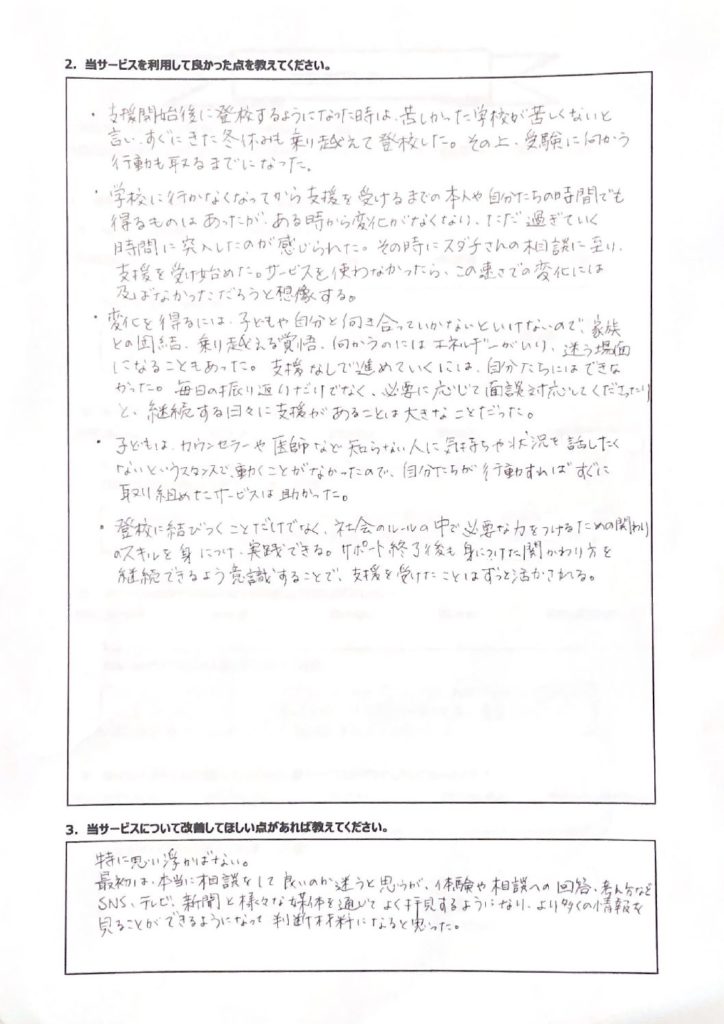 2. 当サービスを利用して良かった点を教えてください。
・支援開始後に登校するようになった時は、苦しかった学校が苦しくないと
言い、すぐにきた冬休みも乗り越えて登校した。その上、受験に向かう
行動も取るまでになった。
・学校に行かなくなってから支援を受けるまでの本人や自分たちの時間でも
得るものはあったが、ある時から変化がなくなり、ただ過ぎていく
時間に突入したのが感じられた。その時にスダチさんの相談に至り、
支援を受け始めた。サービスを使わなかったら、この速さでの変化には
及ばなかっただろうと想像する。
・変化を得るには、子どもや自分と向き合っていかないといけないので、家族
との団結、乗り越える覚悟、向かうのにはエネルギーがいり、迷う場面
になることもあった。支援なしで進めていくには、自分たちにはできな
かった。毎日の振り返りだけでなく、必要に応じて面談対応してくださったり
と、継続する日々に支援があることは大きなことだった。
・子どもは、カウンセラーや医師など知らない人に気持ちや状況を話したく
ないというスタンスで、動くことがなかったので、自分たちが行動すればすぐに
取り組めたサービスは助かった。
・登校に結びつくことだけでなく、社会のルールの中で必要な力をつけるための関わり
のスキルを身につけ、実践できる。サポート終了後も身につけた関かわり方を
継続できるよう意識することで、支援を受けたことはずっと活かされる。
3. 当サービスについて改善してほしい点があれば教えてください。
特に思い浮かばない。
最初は、本当に相談をして良いのか迷うと思うが、体験や相談への回答、考え方など
SNS、テレビ、新聞と様々な媒体を通じてよく拝見するようになり、より多くの情報を
見ることができるようになって判断材料になると思った。